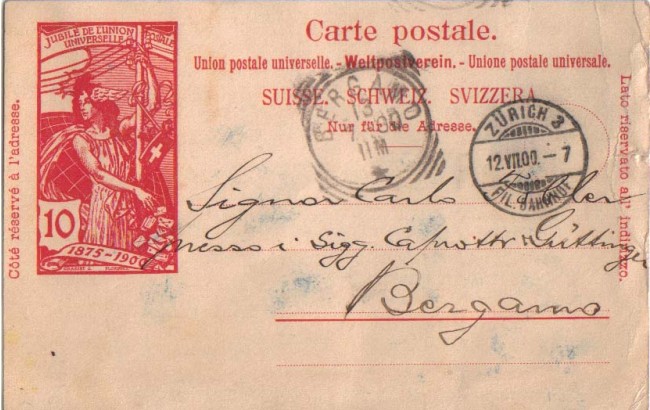 Carte postale.
Union postale universelle. - Weltpostverein. - Unione postale universale.
SUISSE. SCHWEIZ. SVIZZERA.
Nur für die Adresse.
JUBILÉ DE L'UNION
UNIVERSELLE POSTALE
10
1875-1900
Côté réservé à l'adresse.
Lato riservato all' indirizzo.
BERGAMO
ZÜRICH 3
12.VII.00. - 7
FIL. BAHNHOF
Signor Carlo
presso i Sigg. Caprotti Güttinger
Bergamo